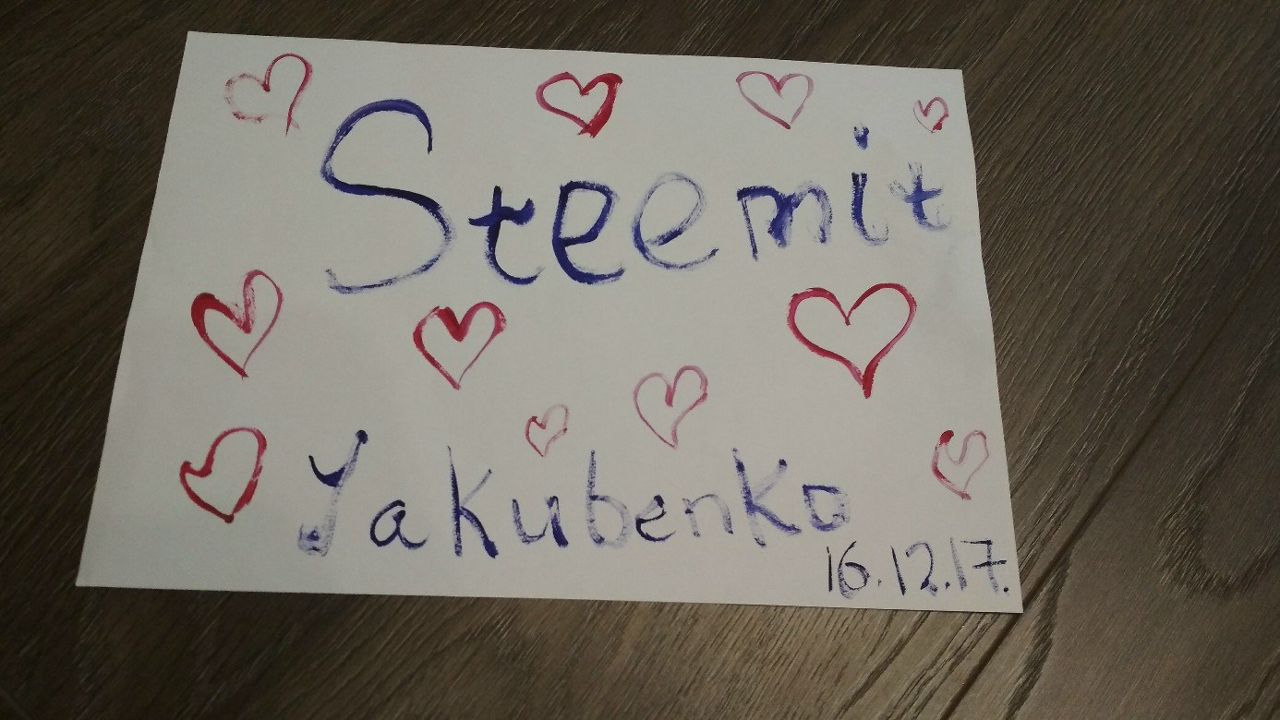 Steemit
Yakubenko
16.12.17.